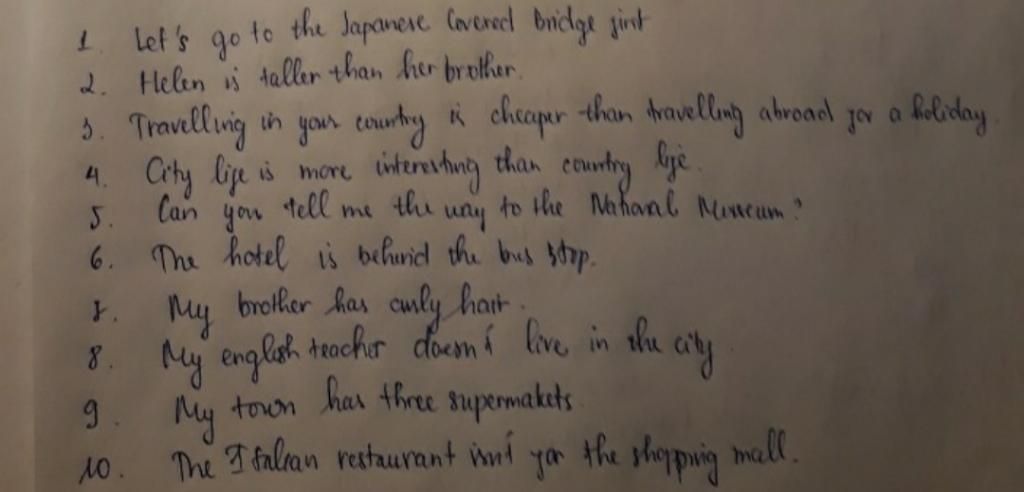 1. Let's go to the Japanese Covered bridge first
2. Helen is taller than her brother.
3. Travelling in your country is cheaper than travelling abroad for a holiday.
4. City life is more interesting than country life.
5. Can you tell me the way to the National Museum?
6. The hotel is behind the bus stop.
7. My brother has curly hair.
8. My english teacher doesn't live in the city
9. My town has three supermakets
10. The Italian restaurant isn't far the shopping mall.